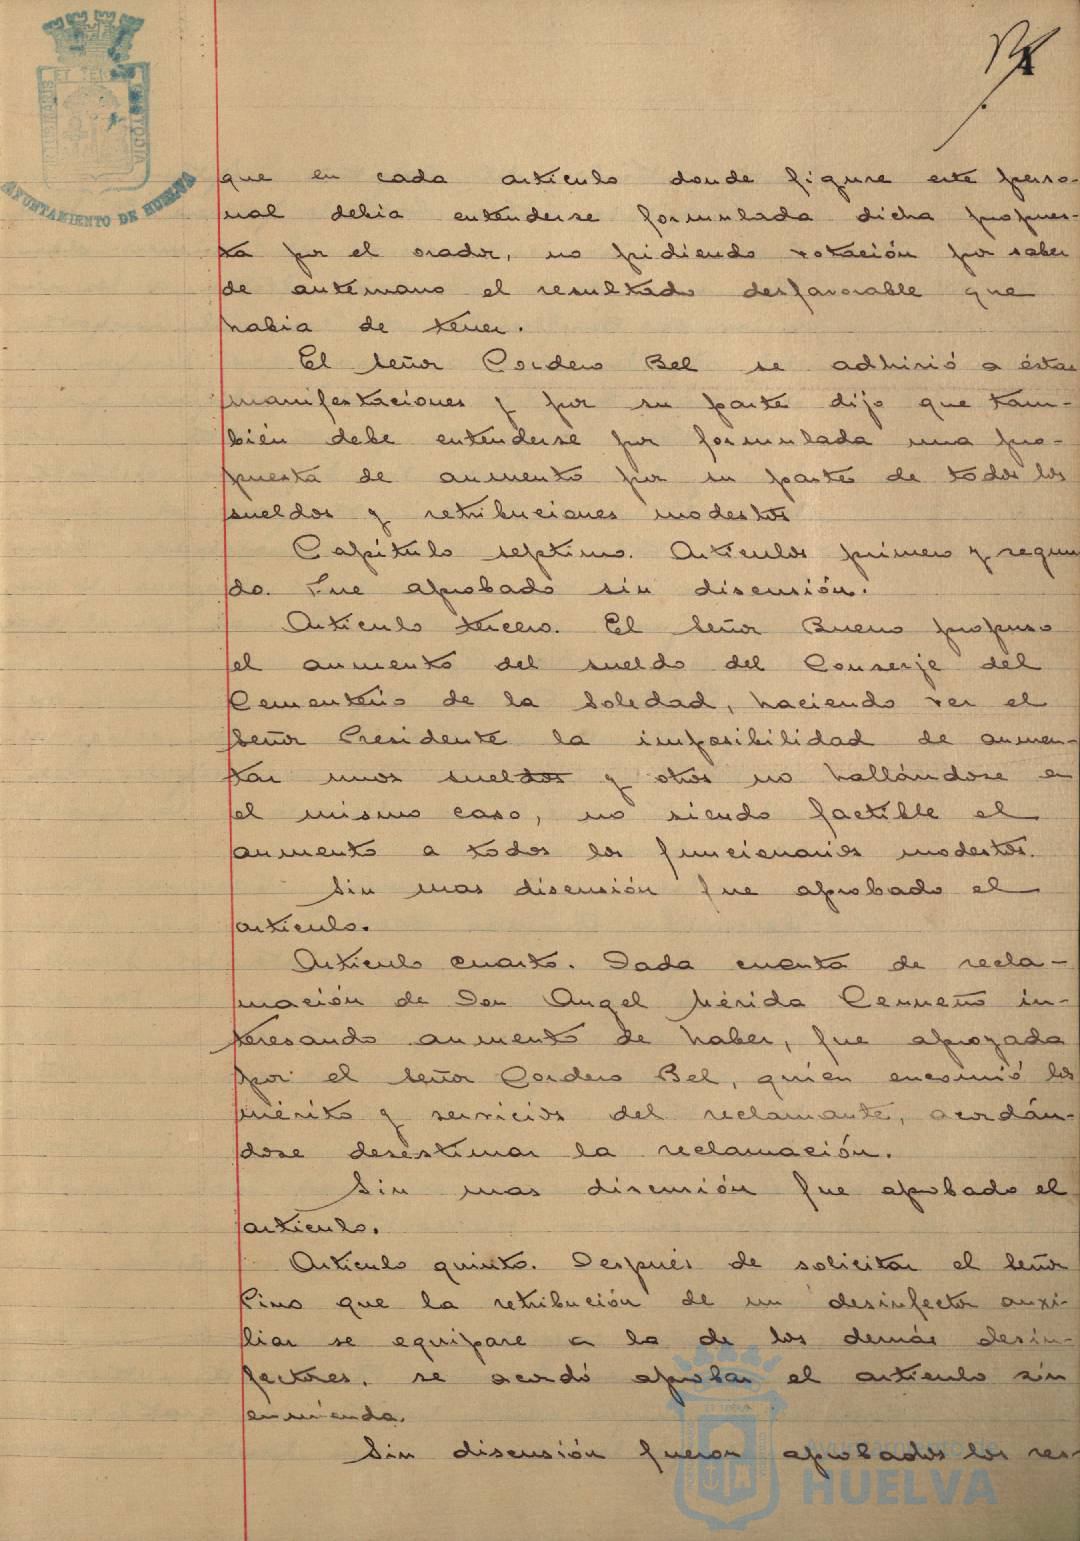 AYUNTAMIENTO DE HUELVA
que en cada articulo donde figure este perso-
nal debia entenderse formulada dicha propues-
ta por el orador, no pidiendo votación por saber
de antemano el resultado desfavorable que
habia de tener.
El Señor Cordero Bel se adhirió a éstas
manifestaciones y por su parte dijo que tam-
bién debe entenderse por formulada una pro-
puesta de aumento por su parte de todos los
sueldos y retribuciones modestos
Capítulo septimo. Articulos primero y segun
do. Fue aprobado sin discusión.
Articulo tercero. El Señor Bueno propuso
el aumento del sueldo del Conserje del
Cementerio de la Soledad, haciendo ver el
Señor Presidente la imposibilidad de aumen-
tar unos sueldos y otros no hallándose en
el mismo caso, no siendo factible el
aumento a todos los funcionarios modestos.
Sin mas discusión fue aprobado el
articulo.
Articulo cuarto. Dada cuenta de recla-
mación de Don Angel Mérida Cerreño in-
teresando aumento de haber, fue apoyada
por el Señor Cordero Bel, quien encomió los
mérito y servicios del reclamante, acordán-
dose desestimar la reclamación.
Sin mas discusión fue aprobado el
articulo.
Articulo quinto. Después de solicitar el Señor
Pino que la retribución de un desinfector auxi-
liar se equipare a la de los demás desin-
fectores, se acordó aprobar el articulo sin
enmienda.
Sin discusión fueron aprobados los res-
Ayuntamiento de
HUELVA